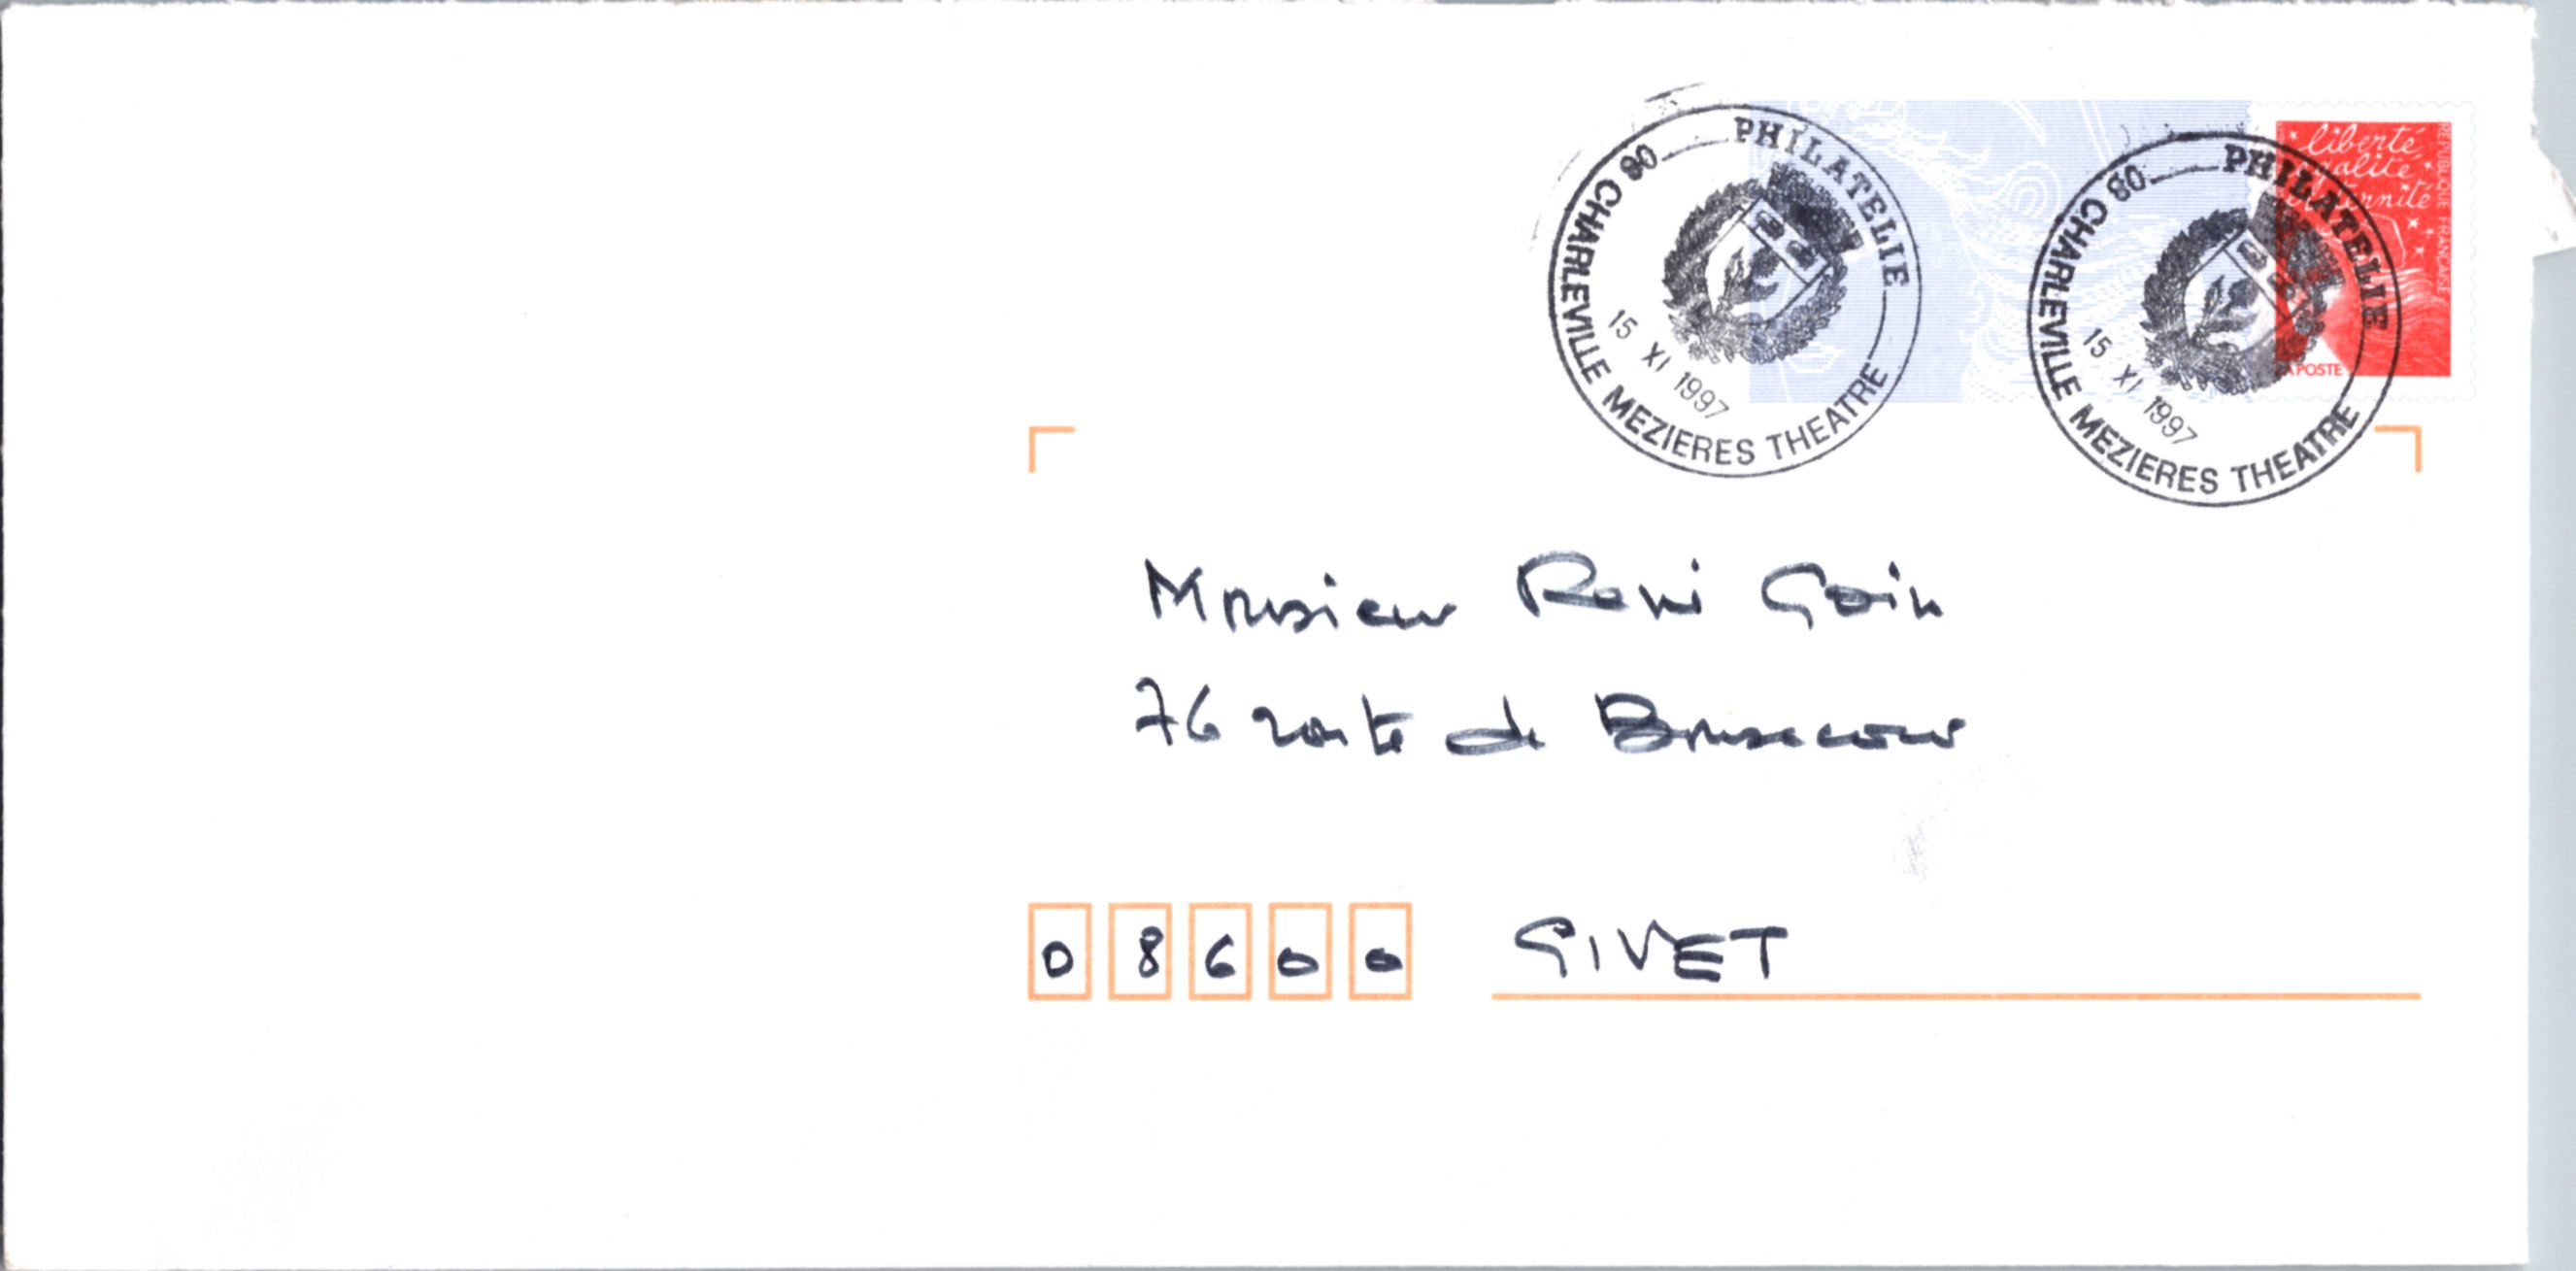 PHILATELIE
08 CHARLEVILLE MEZIERES THEATRE
15 XI 1997
PHILATELIE
08 CHARLEVILLE MEZIERES THEATRE
15 XI 1997
liberté
égalité
fraternité
REPUBLIQUE FRANÇAISE
LA POSTE
Monsieur René Goin
76 route de
08600 GIVET